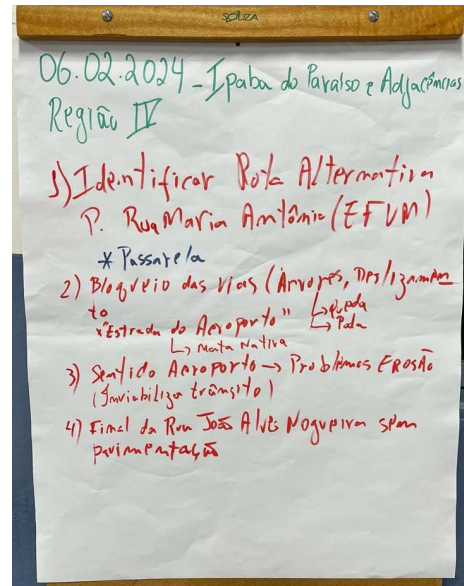 SOUZA
06.02.2024 - Ipaba do Paraíso e Adjacências
Região IV
1) Identificar Rota Alternativa
P. Rua Maria Antônia (EFVM)
* Passarela
2) Bloqueio das vias (Árvores, Deslizamen
to
↳ queda
*"Estrada do Aeroporto"
↳ Poda
↳ Mata Nativa
3) Sentido Aeroporto → Problemas EROSÃO
(Inviabiliza trânsito)
4) Final da Rua João Alves Nogueira sem
pavimentação